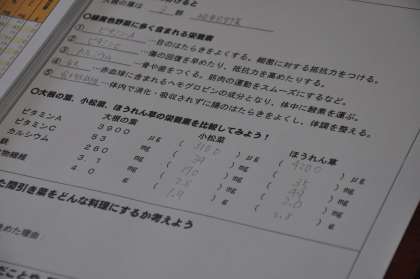 大根の葉は
2 群
緑黄色野菜
○緑黄色野菜に多く含まれる栄養素
① ビタミンA …目のはたらきをよくする。細菌に対する抵抗力をつける。
② ビタミンC …傷の回復を早めたり、抵抗力を高めたりする。
③ カルシウム …骨や歯をつくる。筋肉の運動をスムーズにするなど。
④ 鉄 …赤血球に含まれるヘモグロビンの成分となり、体中に酸素を運ぶ。
⑤ 食物繊維 …体内で消化・吸収されずに腸のはたらきをよくし、体調を整える。
○大根の葉、小松菜、ほうれん草の栄養素を比較してみよう!
大根の葉 小松菜 ほうれん草
ビタミンA 3900 μg ( 3100 ) μg ( 4200 ) μg
ビタミンC 53 mg ( 39 ) mg ( 35 ) mg
カルシウム 260 mg ( 170 ) mg ( ) mg
鉄 3.1 mg ( 2.8 ) mg ( 2.0 ) mg
物繊維 4.0 g ( 1.9 ) g ( 2.8 ) g
た間引き菜をどんな料理にするか考えよう
めた理由